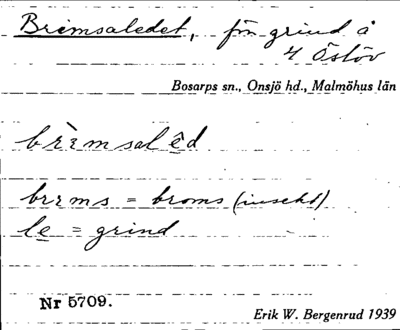 Brimsaledet, för grind å
4 Östöv
Bosarps sn., Onsjö hd., Malmöhus län
brèmsalêd
brems = broms (insekt)
le = grind
Nr 5709.
Erik W. Bergenrud 1939